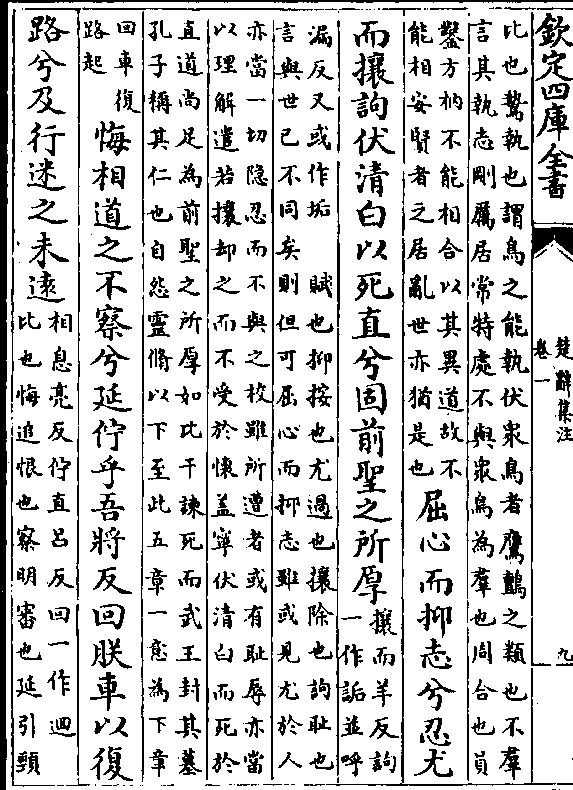 欽定四庫全書
楚辭集注
卷一
九
比也鷙執也謂鳥之能執伏衆鳥者鷹鸇之類也不羣
言其執志剛厲居常特處不與衆鳥為羣也周合也員
鑿方枘不能相合以其異道故不
能相安賢者之居亂世亦猶是也
屈心而抑志兮忍尤
而攘詢伏清白以死直兮固前聖之所厚
攘而羊反詢
一作詬並呼
漏反又或作垢 賦也抑按也尤過也攘除也詢耻也
言與世已不同矣則但可屈心而抑志雖或見尤於人
亦當一切隐忍而不與之校雖所遭者或有耻辱亦當
以理解遣若攘却之而不受於懷盖寧伏清白而死於
直道尚足為前聖之所厚如比干諫死而武王封其墓
孔子稱其仁也自怨靈脩以下至此五章一意為下章
回車復
路起
悔相道之不察兮延佇乎吾將反回朕車以復
路兮及行迷之未遠
相息亮反佇直吕反回一作迴
比也悔追恨也察明審也延引頸